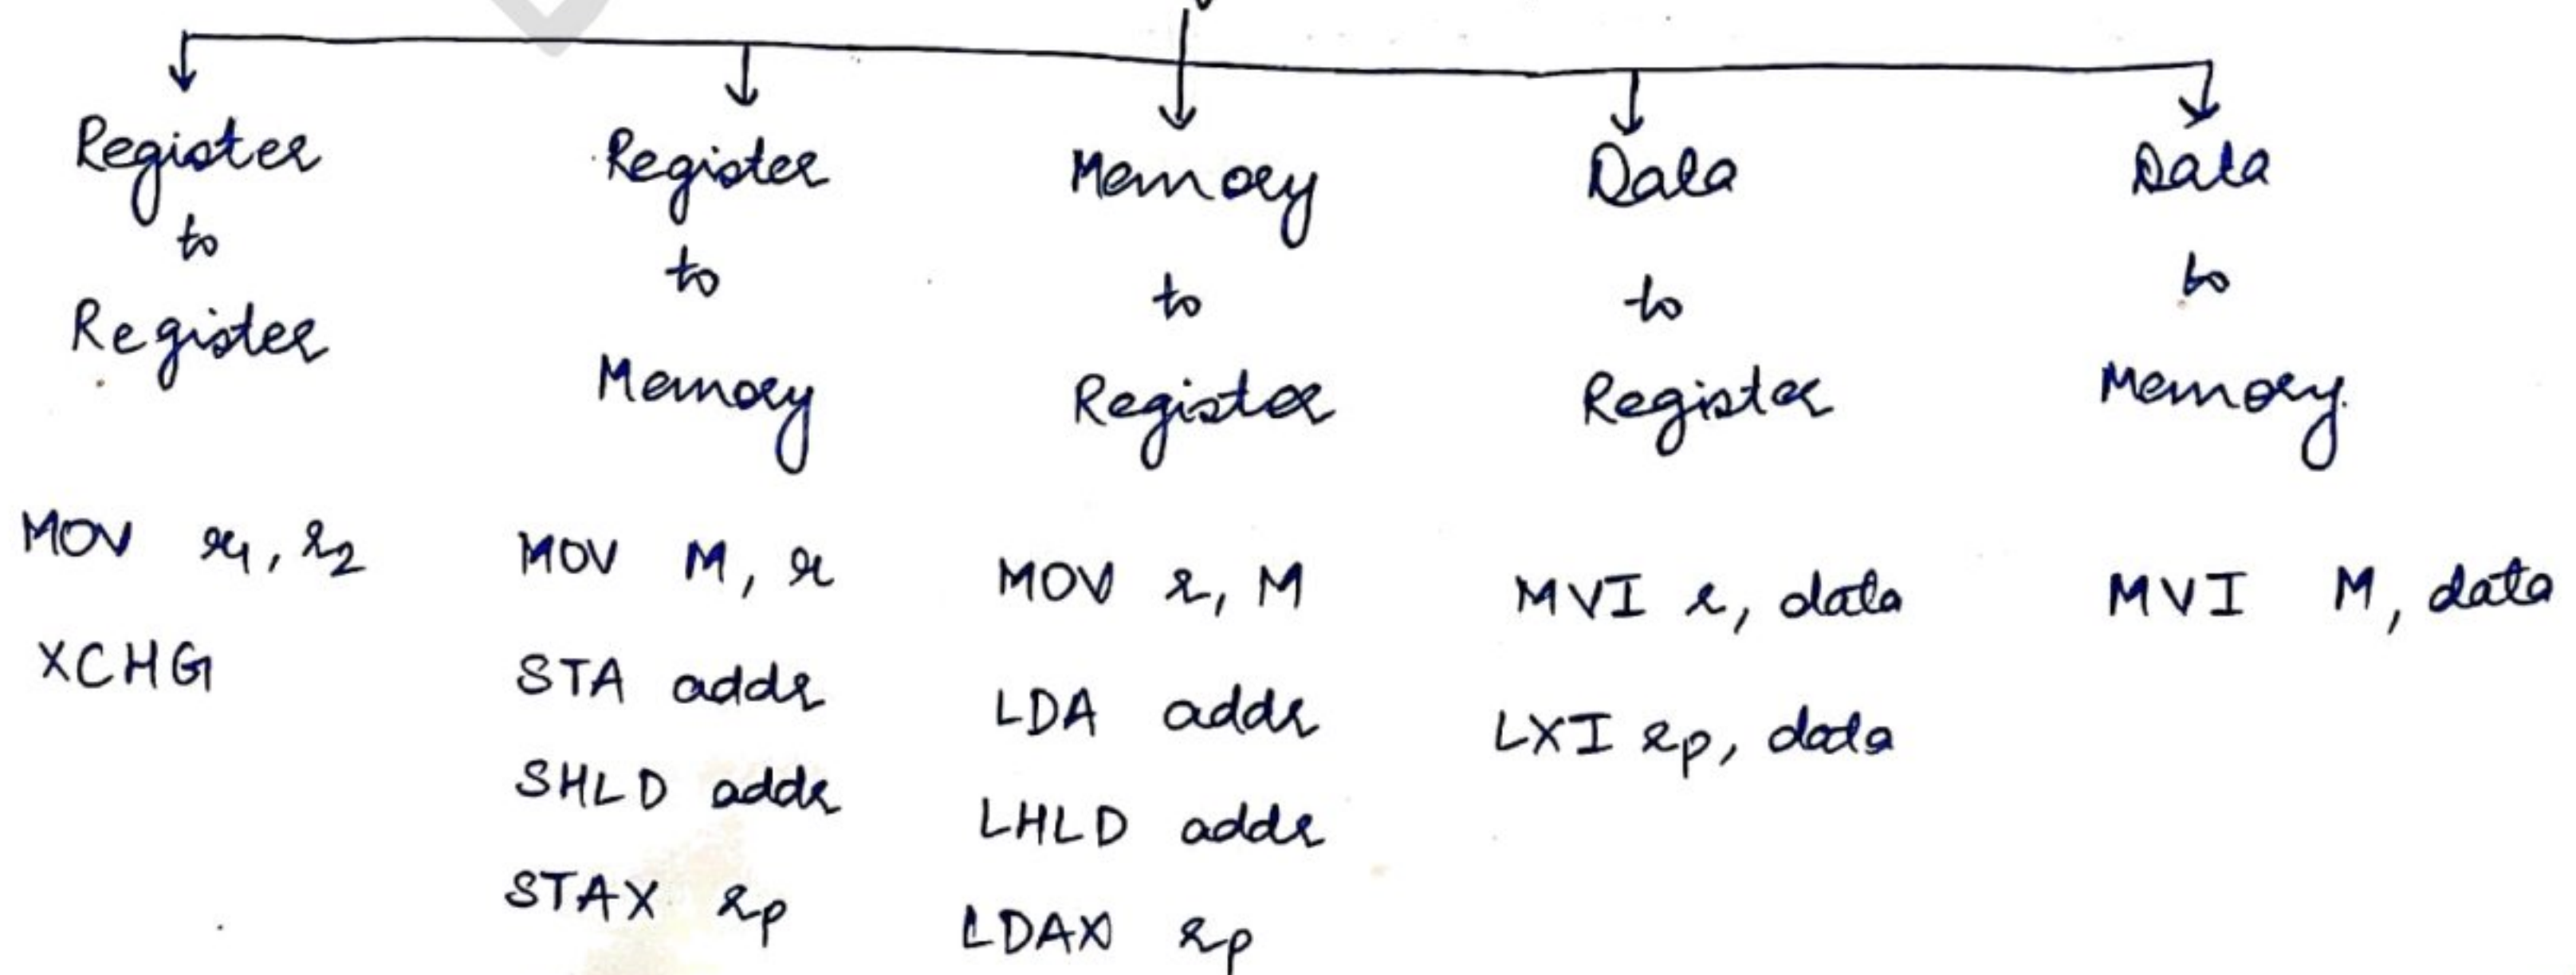 Register
to
Register
MOV r1, r2
XCHG
Register
to
Memory
MOV M, r
STA addr
SHLD addr
STAX rp
Memory
to
Register
MOV r, M
LDA addr
LHLD addr
LDAX rp
Data
to
Register
MVI r, data
LXI rp, data
Data
to
Memory.
MVI M, data